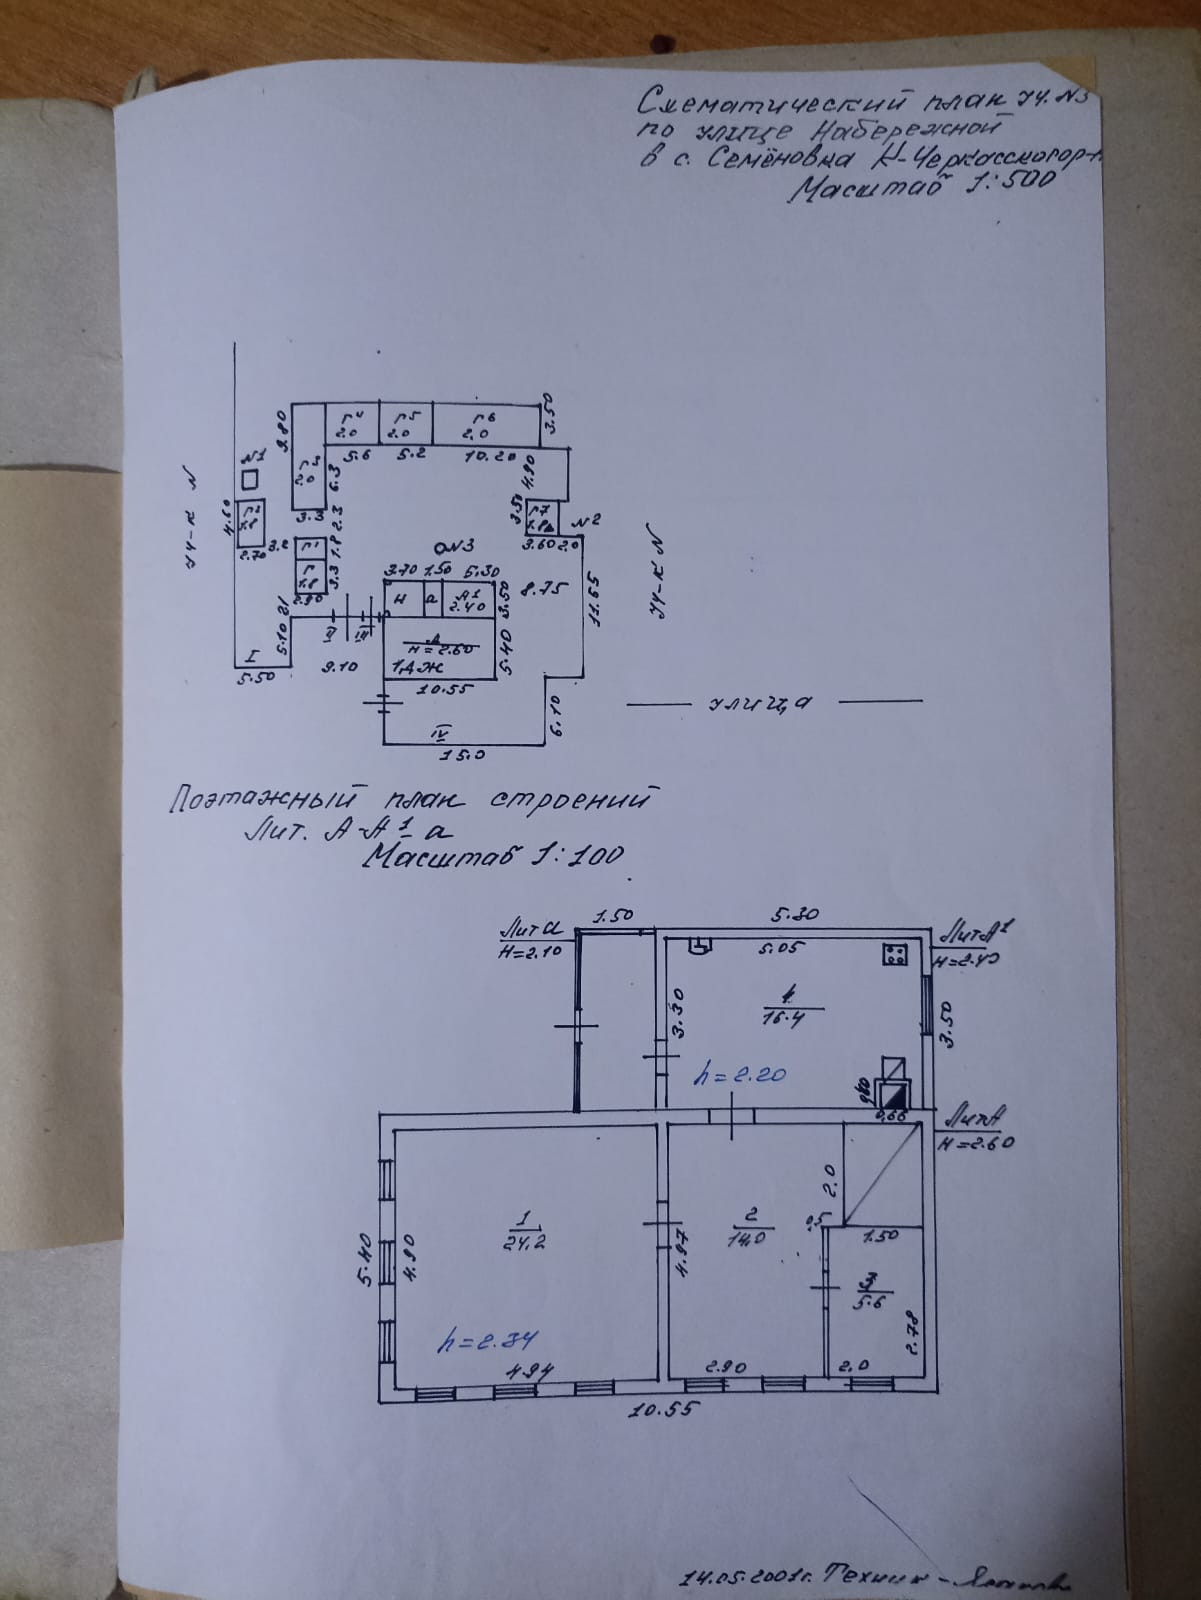 Схематический план уч. №3
по улице Набережной
в с. Семёновка К-Черкасского р-н
Масштаб 1:500
9.80
Г4
2.0
Г5
2.0
Г6
2.0
3.50
5.6
5.2
10.20
Г3
2.0
6.3
4.90
№1
уч-к №
4.60
Г2
1.8
2.70
3.3
2.3
3.50
Г7
1.8
№2
3.60
2.0
3.2
Г1
1.8
Г
1.8
3.3
2.90
№3
3.70
1.50
5.30
8.75
уч-к №
н
а
А1
2.40
3.50
11.55
21
5.10
I
5.50
II
III
9.10
А
Н=2.60
1ДЖ
5.40
10.55
IV
15.0
6.10
улица
Поэтажный план строений
Лит. А-А1-а
Масштаб 1:100
Лит а
Н=2.10
1.50
5.30
5.05
Лит А1
Н=2.40
3.30
4
16.4
3.50
h=2.20
0.66
Лит А
Н=2.60
2.0
1
24.2
2
14.0
0.5
1.50
5.40
4.90
4.97
3
5.6
2.78
h=2.34
4.94
2.90
2.0
10.55
14.05.2001г. Техник -